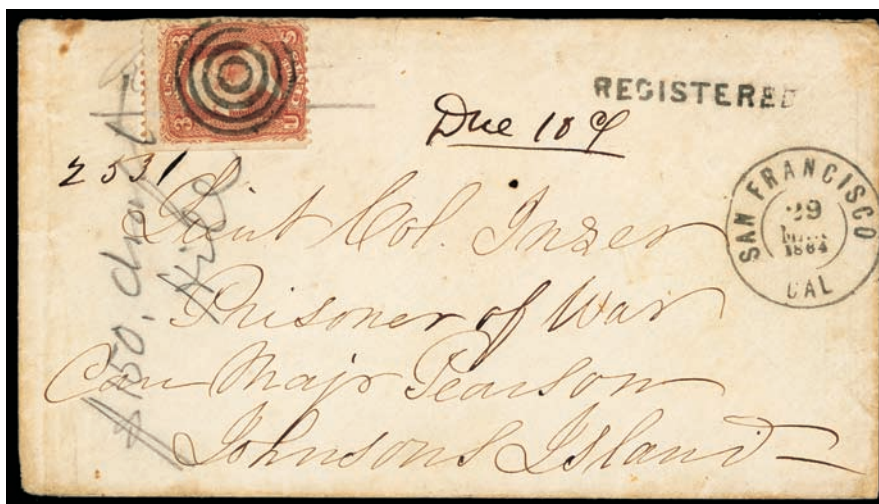 REGISTERED
Due 10 ¢
2531
SAN FRANCISCO
29
1864
CAL
Lieut Col. Inzer
Prisoner of War
Care Majr Pearson
Johnsons Island
$150. draft
3 U.S. 3
U S